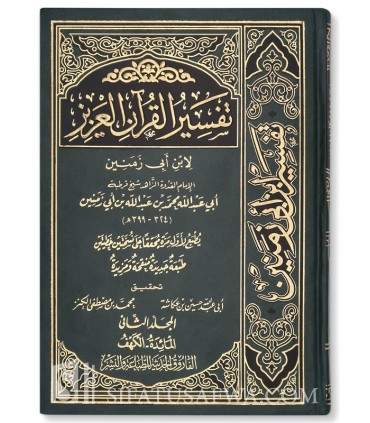 تفسير القرآن العزيز
لابن أبي زمنين
الإمام القدوة الزاهد شيخ قرطبة
أبي عبد الله محمد بن عبد الله بن أبي زمنين
(٣٢٤ - ٣٩٩هـ)
يطبع لأول مرة محققا على نسختين خطيتين
طبعة جديدة منقحة ومزيدة
تحقيق
أبي عبد الله حسين بن عكاشة
محمد بن مصطفى الكنز
المجلد الثاني
المائدة - الكهف
الفاروق الحديثة للطباعة والنشر
تفسير ابن أبي زمنين
SIFATUSAFWA.COM